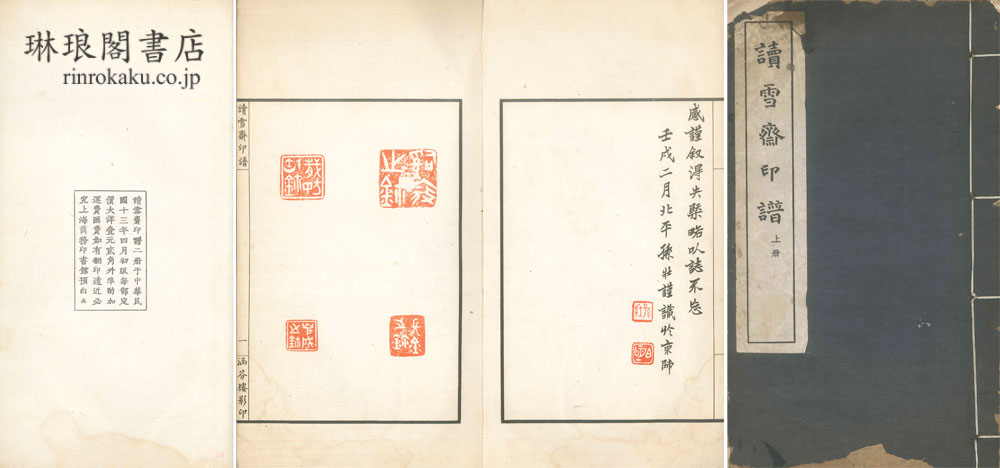 琳琅閣書店
rinrokaku.co.jp
讀雪齋印譜二册于中華民
國十三年四月初版每部定
價大洋壹元貳角外埠酌加
運費匯費如有翻印遠近必
究上海商務印書館預白
讀雪齋印譜
一
涵芬樓影印
感謹叙得失槩略以誌不忘
壬戌二月北平孫壯謹識於京師
讀雪齋印譜
上册